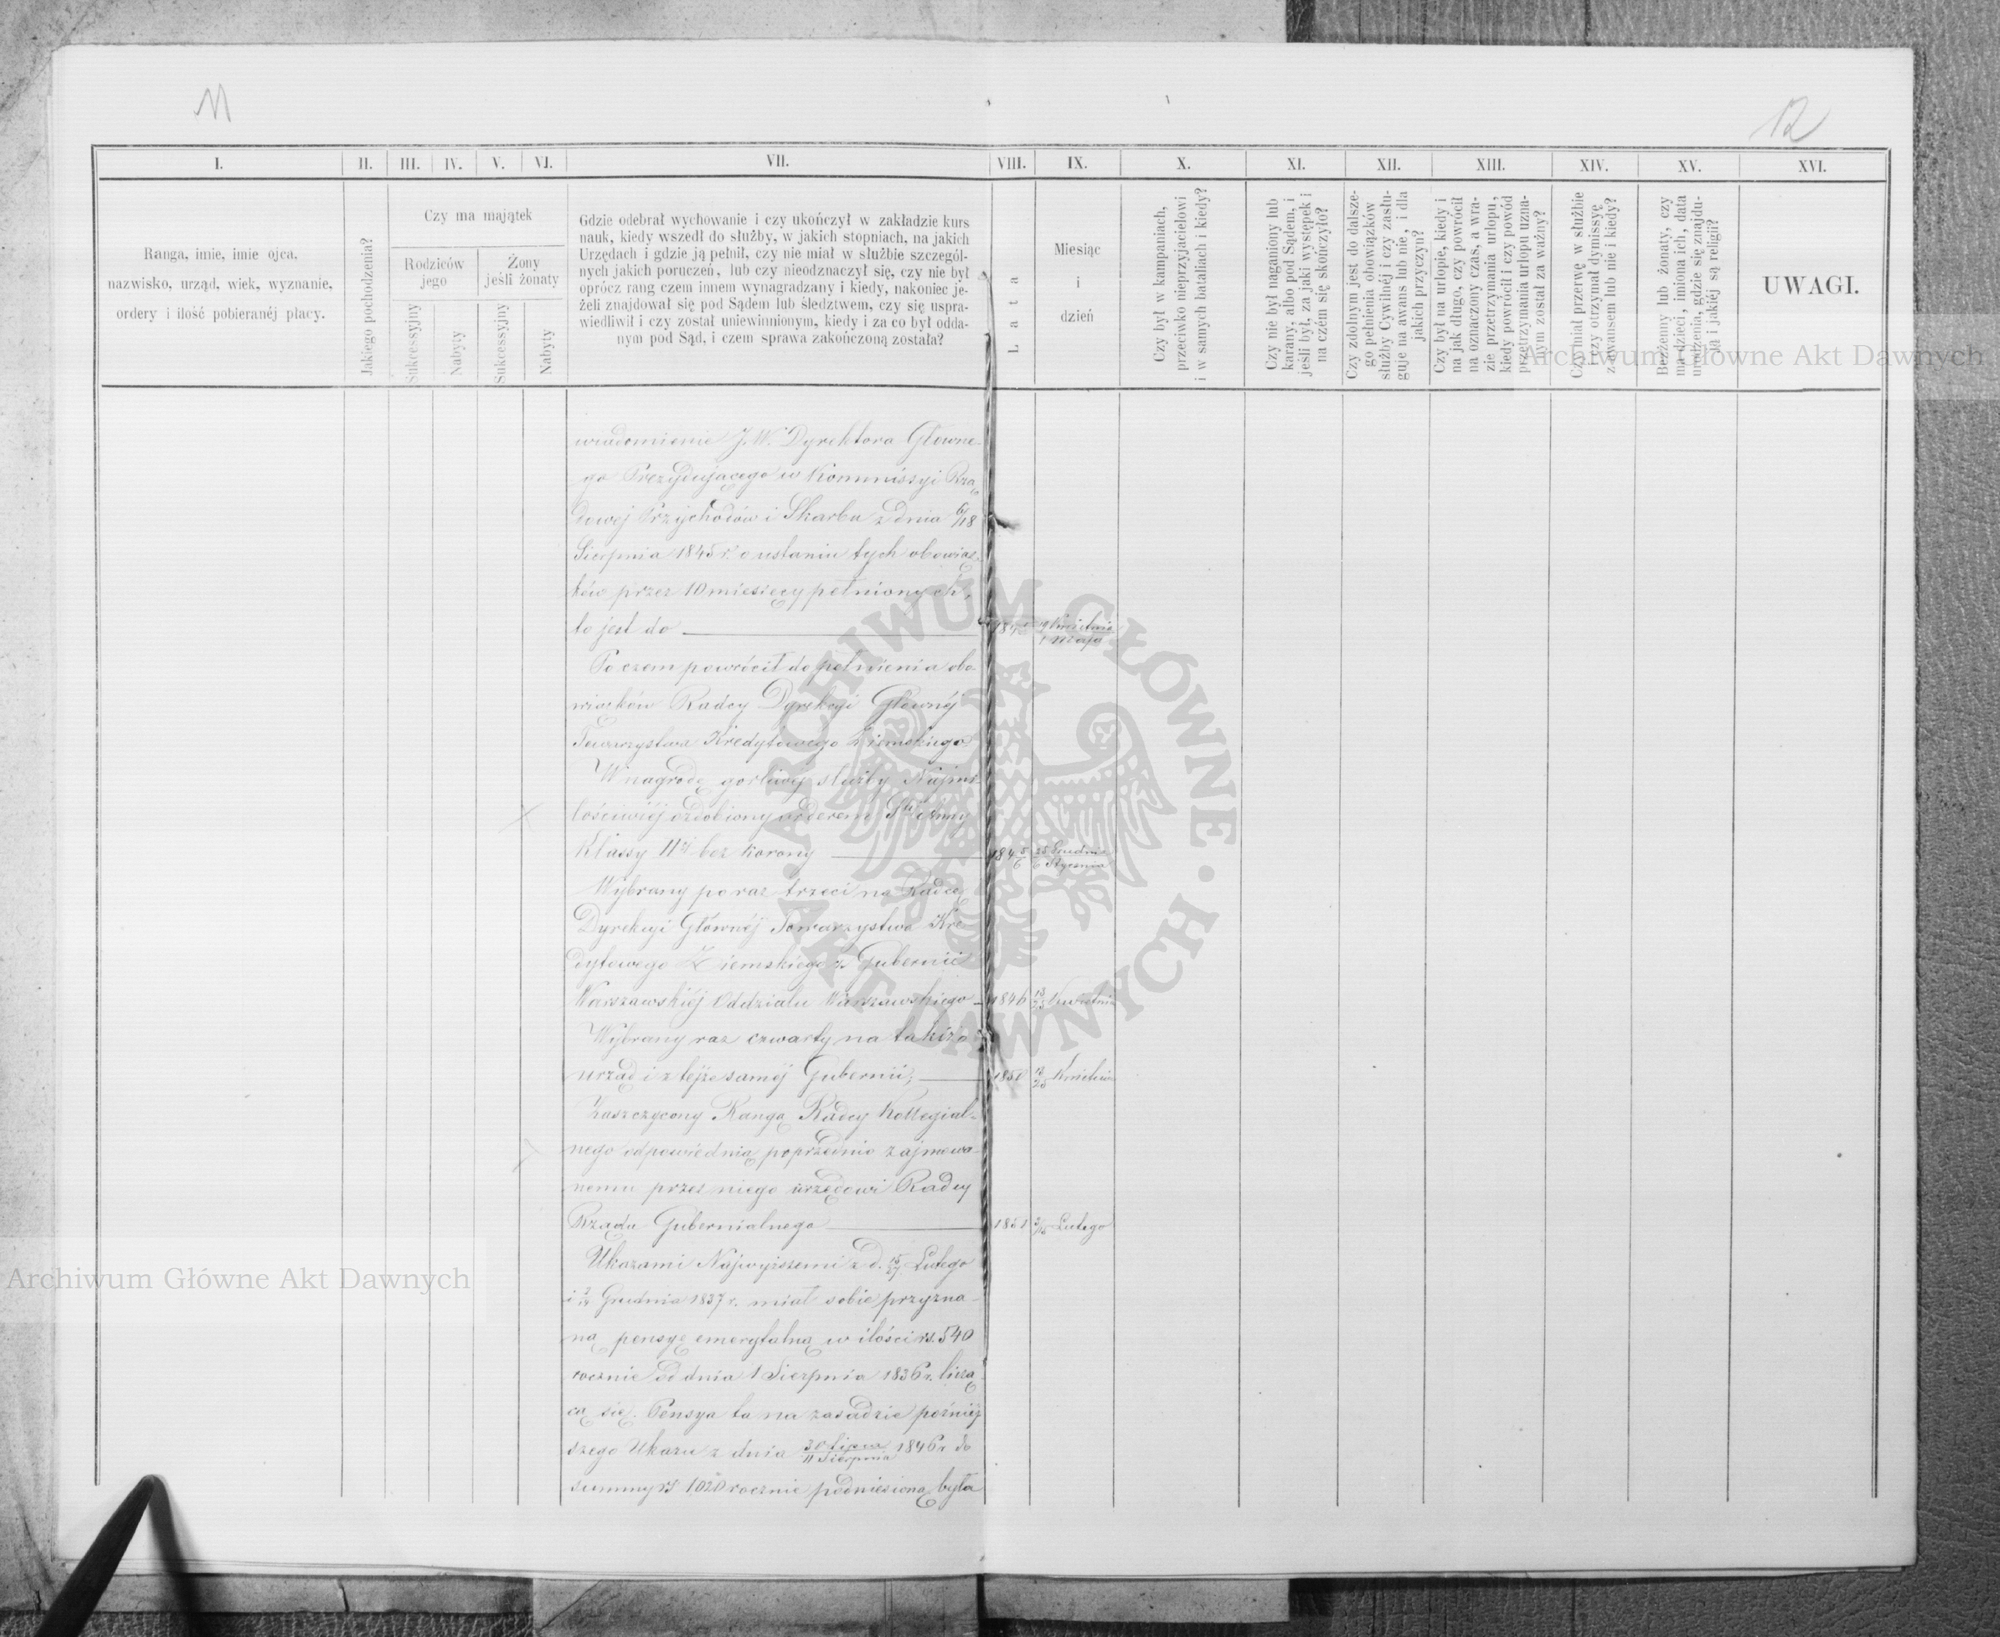 11
12
I.
II.
III.
IV.
V.
VI.
VII.
VIII.
IX.
X.
XI.
XII.
XIII.
XIV.
XV.
XVI.
Ranga, imie, imie ojca,
nazwisko, urząd, wiek, wyznanie,
ordery i ilość pobieranéj płacy.
Jakiego pochodzenia?
Czy ma majątek
Rodziców
jego
Żony
jeśli żonaty
Sukcessyjny
Nabyty
Sukcessyjny
Nabyty
Gdzie odebrał wychowanie i czy ukończył w zakładzie kurs
nauk, kiedy wszedł do służby, w jakich stopniach, na jakich
Urzędach i gdzie ją pełnił, czy nie miał w służbie szczegól-
nych jakich poruczeń, lub czy nieodznaczył się, czy nie był
oprócz rang czem innem wynagradzany i kiedy, nakoniec je-
żeli znajdował się pod Sądem lub śledztwem, czy się uspra-
wiedliwił i czy został uniewinnionym, kiedy i za co był odda-
nym pod Sąd, i czem sprawa zakończoną została?
Lata
Miesiąc
i
dzień
Czy był w kampaniach,
przeciwko nieprzyjacielowi
i w samych bataliach i kiedy?
Czy nie był naganiony lub
karany, albo pod Sądem, i
jeśli był, za jaki występek i
na czém się skończyło?
Czy zdolnym jest do dalsze-
go pełnienia obowiązków
służby Cywilnéj i czy zasłu-
guje na awans lub nie, i dla
jakich przyczyn?
Czy był na urlopie, kiedy i
na jak długo, czy powrócił
na oznaczony czas, a w ra-
zie przetrzymania urlopu,
kiedy powrócił i czy powód
przetrzymania urlopu uzna-
nym został za ważny?
Czy miał przerwę w służbie
i czy otrzymał dymissyę
z awansem lub nie i kiedy?
Bezżenny lub żonaty, czy
ma dzieci, imiona ich, data
urodzenia, gdzie się znajdu-
ją i jakiéj są religii?
UWAGI.
wiadomienie J.W. Dyrektora Główne-
go Prezydującego w Kommissyi Rzą-
dowej Przychodów i Skarbu z dnia 6/18
Sierpnia 1845 r. o ustaniu tych obowiąz-
ków przez 10 miesięcy pełnionych,
to jest do 19 Kwietnia
1 Maja
Po czem powrócił do pełnienia obo-
wiązków Radcy Dyrekcyi Głównéj
Towarzystwa Kredytowego Ziemskiego
W nagrodę gorliwéj służby Najmi-
łościwiéj ozdobiony orderem Stéj Anny
Klassy IIéj bez korony 184 5/6 25 Grudnia
6 Stycznia
Wybrany po raz trzeci na Radcę
Dyrekcyi Głównéj Towarzystwa Kre-
dytowego Ziemskiego z Gubernii
Warszawskiéj Oddziału Warszawskiego 1846 13/25 Kwietnia
Wybrany raz czwarty na takiż
urząd i z tejże saméj Gubernii, 1850 13/25 Kwietnia
Zaszczycony Rangą Radcy Kollegial-
nego odpowiednią poprzednio zajmowa-
nemu przez niego urzędowi Radcy
Rządu Gubernialnego 1851 3/15 Lutego
Ukazami Najwyższemi z d. 15/27 Lutego
i 2/14 Grudnia 1837 r. miał sobie przyzna-
ną pensyę emerytalną w ilości rs. 540
rocznie od dnia 1 Sierpnia 1836 r. liczą-
cą się. Pensya ta na zasadzie późniéj-
szego Ukazu z dnia 30 Lipca
11 Sierpnia 1846 r. do
summy rs 1020 rocznie podniesioną była
ARCHIWUM GŁÓWNE AKT DAWNYCH
Archiwum Główne Akt Dawnych
Archiwum Główne Akt Dawnych